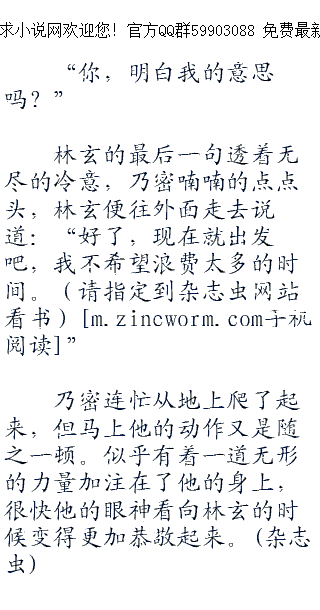 求小说网欢迎您！官方QQ群59903088 免费最新
“你，明白我的意思
吗？”
林玄的最后一句透着无
尽的冷意，乃密喃喃的点点
头，林玄便往外面走去说
道：“好了，现在就出发
吧，我不希望浪费太多的时
间。（请指定到杂志虫网站
看书）[m.zincworm.com手机
阅读]”
乃密连忙从地上爬了起
来，但马上他的动作又是随
之一顿。似乎有着一道无形
的力量加注在了他的身上，
很快他的眼神看向林玄的时
候变得更加恭敬起来。（杂志
虫）